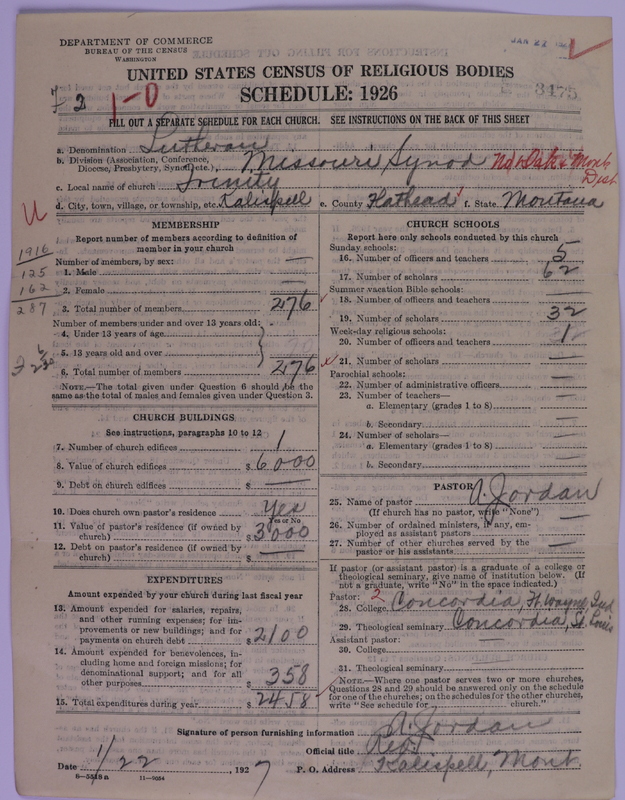 DEPARTMENT OF COMMERCE
BUREAU OF THE CENSUS
WASHINGTON
JAN 22
UNITED STATES CENSUS OF RELIGIOUS BODIES
SCHEDULE: 1926
3475
1-0
FILL OUT A SEPARATE SCHEDULE FOR EACH CHURCH. SEE INSTRUCTIONS ON THE BACK OF THIS SHEET
a. Denomination Lutheran
b. Division (Association, Conference, Diocese, Presbytery, Synod, etc.) Missouri Synod No. Dak & Mont. Dist.
c. Local name of church Trinity
d. City, town, village, or township, etc. Kalispell e. County Flathead f. State Montana
MEMBERSHIP
Report number of members according to definition of
member in your church
1916
125
162
287
Number of members, by sex:
1. Male —
2. Female —
3. Total number of members 276
Number of members under and over 13 years old:
4. Under 13 years of age
5. 13 years old and over
6. Total number of members 276
NOTE.—The total given under Question 6 should be the
same as the total of males and females given under Question 3.
CHURCH BUILDINGS
See instructions, paragraphs 10 to 12
7. Number of church edifices 1
8. Value of church edifices $ 6000
9. Debt on church edifices $ —
10. Does church own pastor's residence Yes
Yes or No
11. Value of pastor's residence (if owned by
church) $ 3000
12. Debt on pastor's residence (if owned by
church) $ —
EXPENDITURES
Amount expended by your church during last fiscal year
13. Amount expended for salaries, repairs,
and other running expenses; for im-
provements or new buildings; and for
payments on church debt $ 2100
14. Amount expended for benevolences, in-
cluding home and foreign missions; for
denominational support; and for all
other purposes $ 358
15. Total expenditures during year $ 2458
CHURCH SCHOOLS
Report here only schools conducted by this church
Sunday schools:
16. Number of officers and teachers 5
17. Number of scholars 62
Summer vacation Bible schools:
18. Number of officers and teachers
19. Number of scholars 32
Week-day religious schools:
20. Number of officers and teachers 1
21. Number of scholars —
Parochial schools:
22. Number of administrative officers —
23. Number of teachers—
a. Elementary (grades 1 to 8) —
b. Secondary —
24. Number of scholars—
a. Elementary (grades 1 to 8) —
b. Secondary —
PASTOR
25. Name of pastor A. Jordan
(If church has no pastor, write "None")
26. Number of ordained ministers, if any, em-
ployed as assistant pastors —
27. Number of other churches served by the
pastor or his assistants —
If pastor (or assistant pastor) is a graduate of a college or
theological seminary, give name of institution below. (If
not a graduate, write "No" in the space indicated.)
Pastor: 2
28. College Concordia, Ft. Wayne, Ind
29. Theological seminary Concordia, St. Louis
Assistant pastor: —
30. College
31. Theological seminary
NOTE.—Where one pastor serves two or more churches,
Questions 28 and 29 should be answered only on the schedule
for one of the churches; on the schedules for the other churches,
write "See schedule for church."
Signature of person furnishing information A. Jordan
Official title Rev.
Date 1/22, 1927 P. O. Address Kalispell, Mont.
8-5518a 11-9664